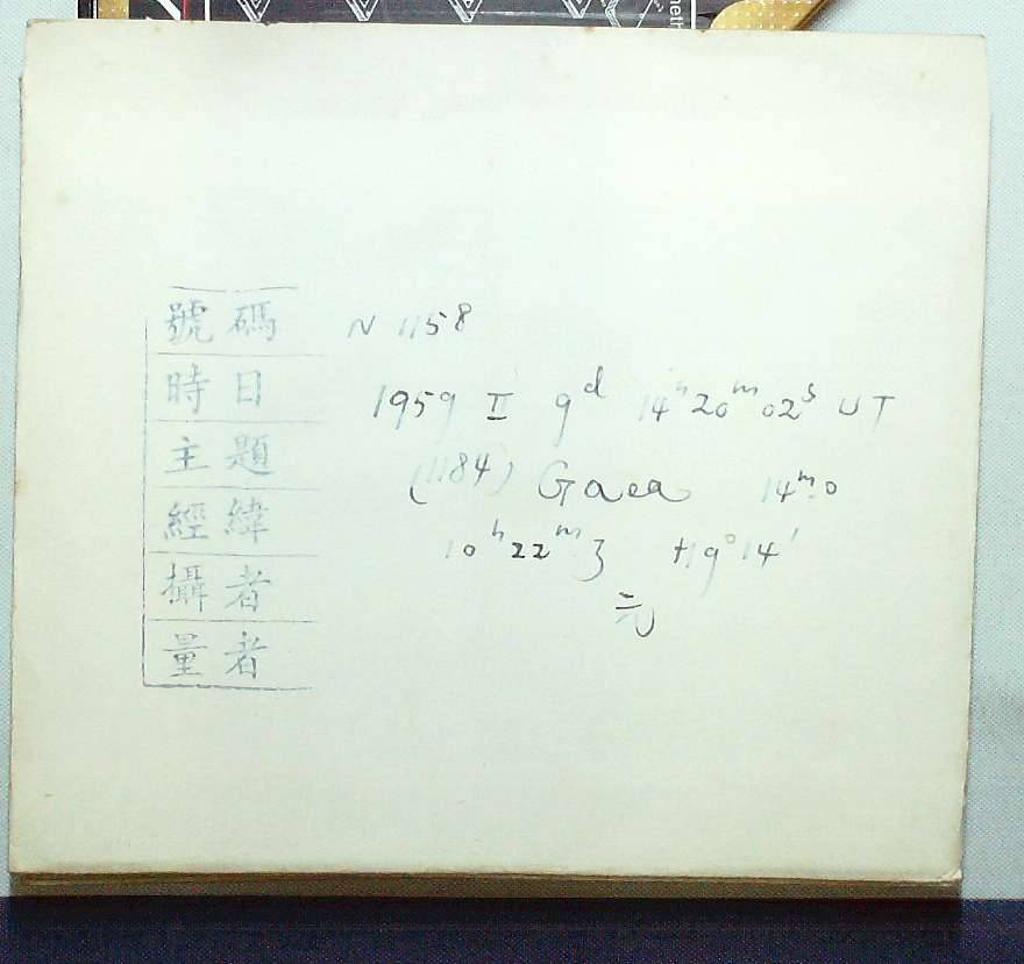 neth
號碼 N 1158
時日 1959 II 9ᵈ 14ʰ20ᵐ02ˢ UT
主題 (1184) Gaea 14ᵐ.0
經緯 10ʰ22ᵐ.3 +19°14'
攝者 元
量者